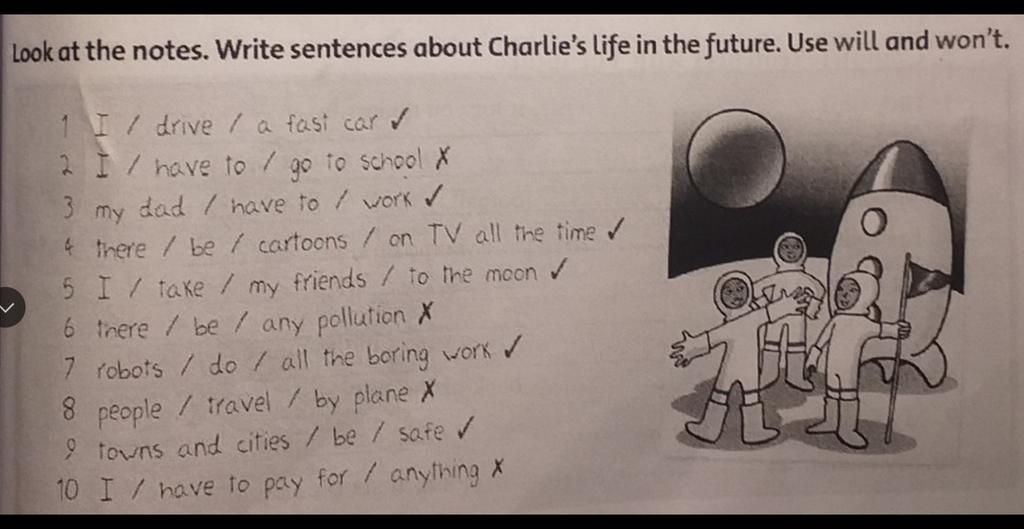 Look at the notes. Write sentences about Charlie's life in the future. Use will and won't.
1 I / drive / a fast car ✓
2 I / have to / go to school ✗
3 my dad / have to / work ✓
4 there / be / cartoons / on TV all the time ✓
5 I / take / my friends / to the moon ✓
6 there / be / any pollution ✗
7 robots / do / all the boring work ✓
8 people / travel / by plane ✗
9 towns and cities / be / safe ✓
10 I / have to pay for / anything ✗